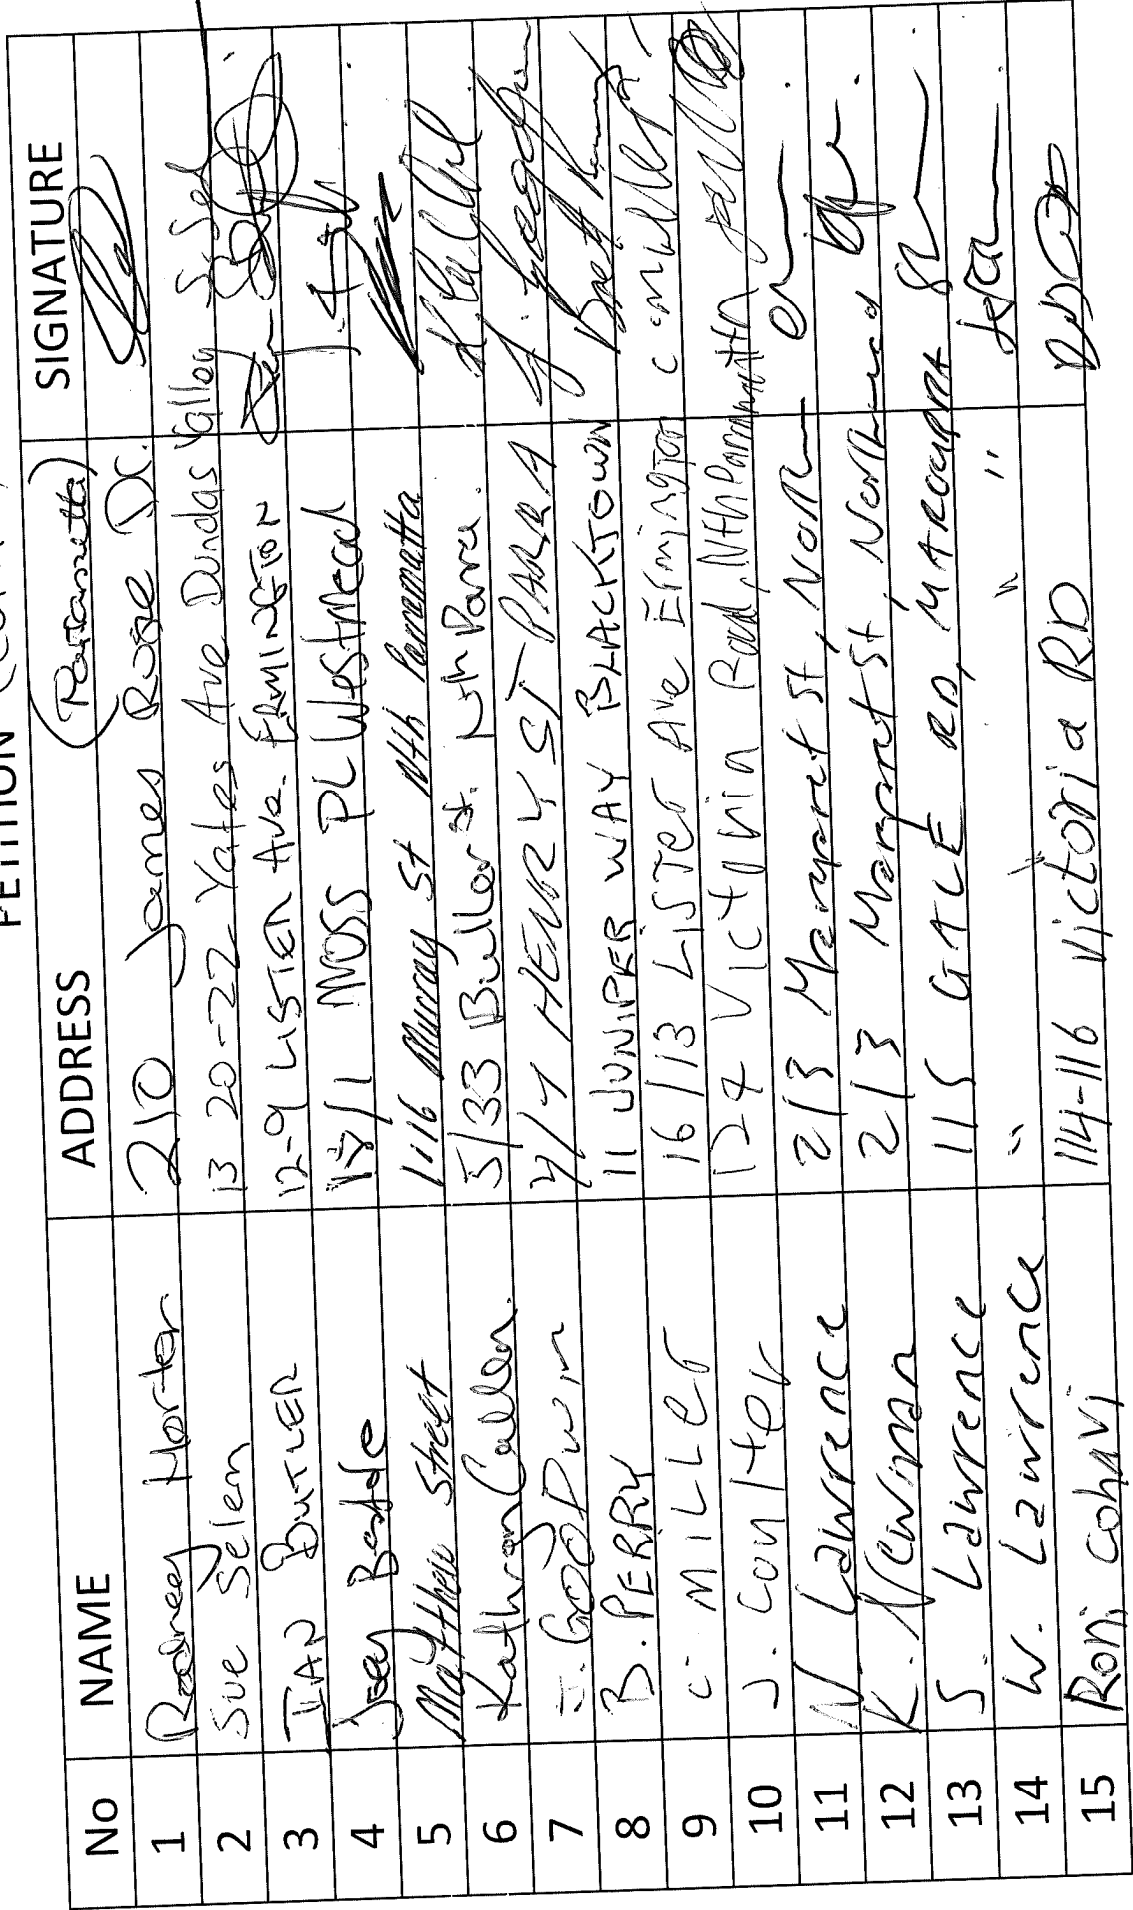 PETITION
No NAME ADDRESS SIGNATURE
(Parramatta)
1 Rodney Horton 210 James Ruse Dr.
2 Sue Selem 13 20-22 Yates Ave Dundas Valley S. Sel
3 IAN BUTLER 12-9 LISTER Ave. ERMINGTON
4 Joey 1 MOSS PL Westmead
5 Matthew Street 1.116 Murray St Nth Parramatta
6 Kathryn Cullen. 5/33 Buller St. Nth Parra.
7 J. GOODwin 4/7 HENRY ST PARRA
8 B. PERRY 11 JUNIPER WAY BLACKTOWN
9 C. MiLLer 16/13 LiSTer Ave Ermington C. Miller
10 J. Coulter 124 Victoria Road, Nth Parramatta
11 N Lawrence 2/3 Margaret St, North
12 K. Newman 2/3 Margaret St, North
13 S Lawrence 115 GALE RD, MAROUBRA
14 W. Lawrence " " " "
15 Roni Cohavi 114-116 Victoria RD